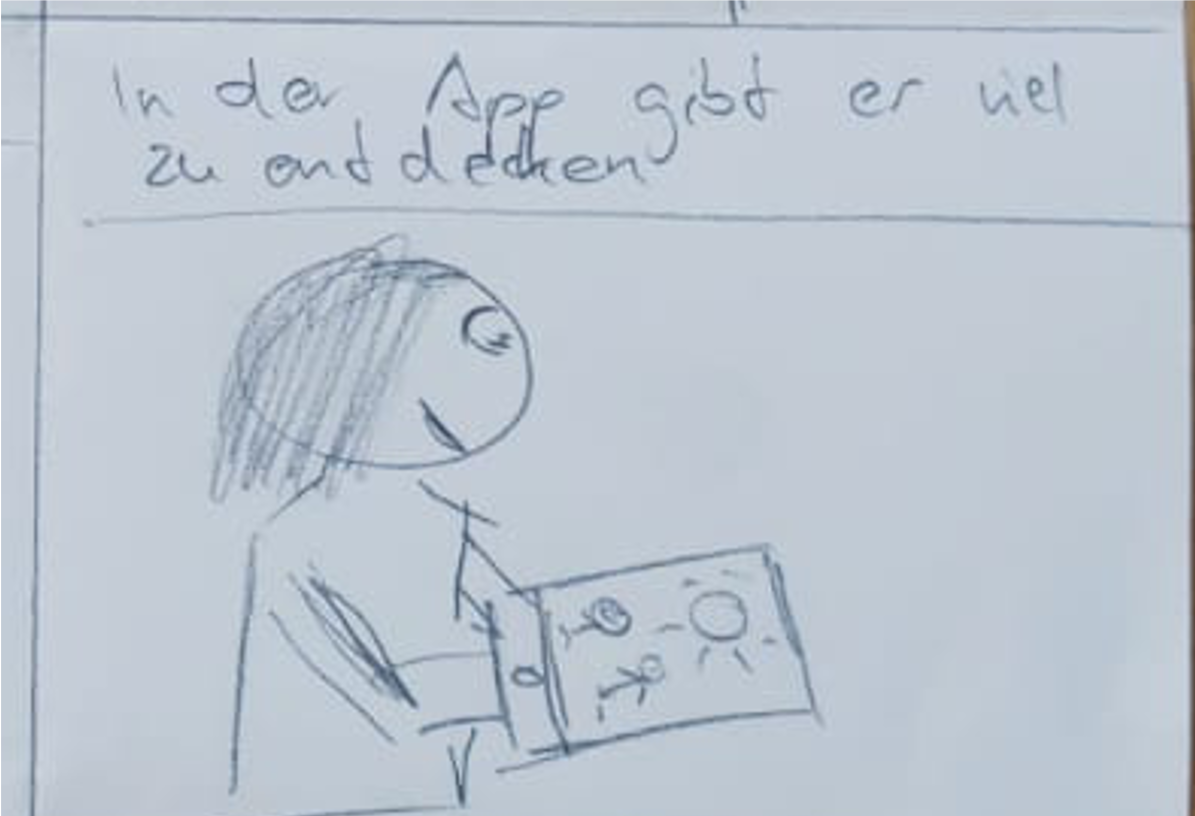 In der App gibt er viel
zu entdecken